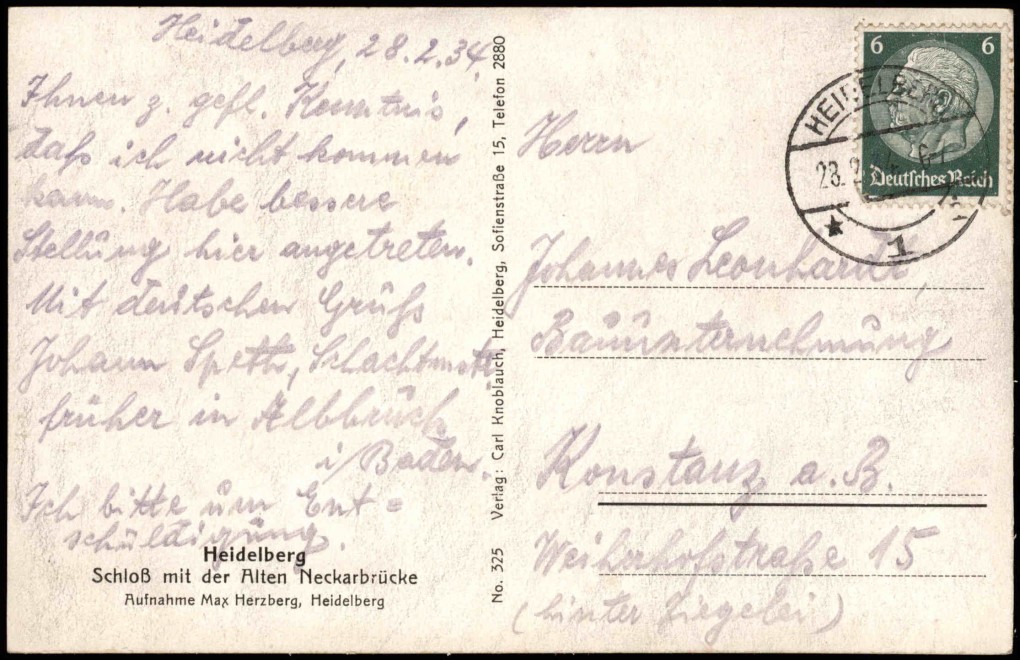 Heidelberg, 28.2.34
Ihnen z. gefl. Kenntnis,
daß ich nicht kommen
kann. Habe bessere
Stellung hier angetreten.
Mit deutschem Gruß
Johann Speth, Schachtmstr.
früher in Albbruck
i/Baden.
Ich bitte um Ent=
schuldigung.
Heidelberg
Schloß mit der Alten Neckarbrücke
Aufnahme Max Herzberg, Heidelberg
No. 325 Verlag: Carl Knoblauch, Heidelberg, Sofienstraße 15, Telefon 2880
6 6
Deutsches Reich
HEIDELBERG
28.2
1
Herrn
Johannes Leonhardt,
Bauunternehmung
Konstanz a. B.
straße 15
(hinter Ziegelei)